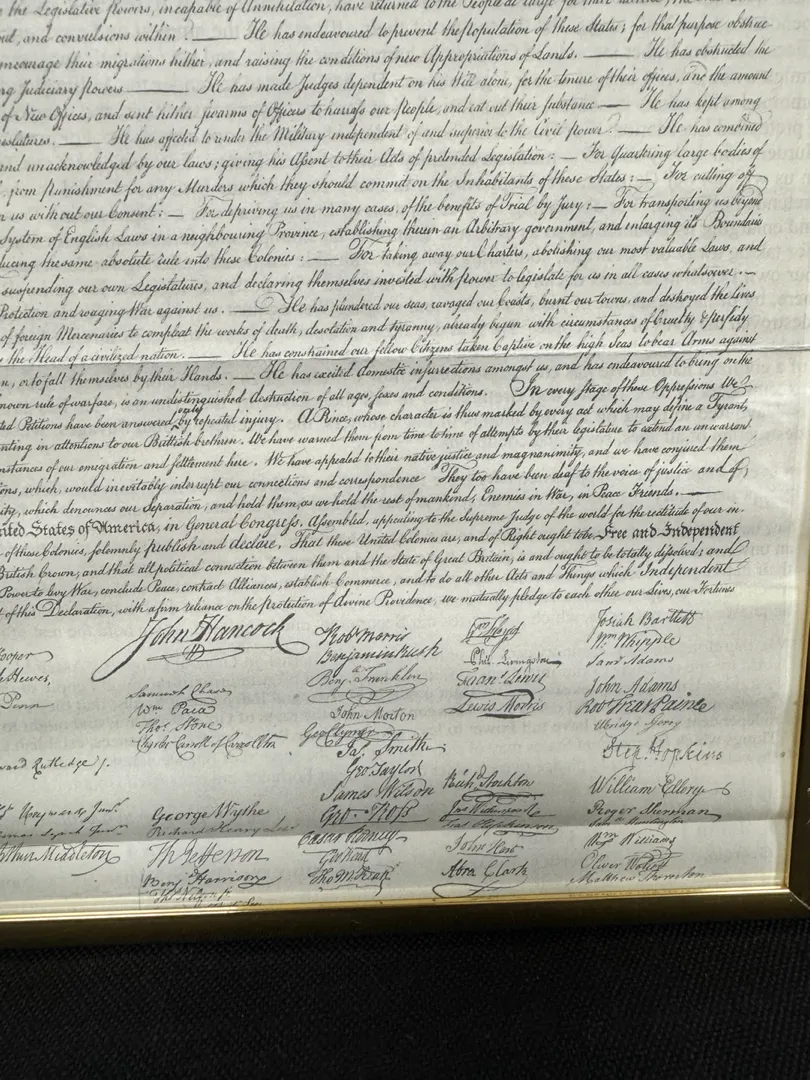 the Legislative powers, incapable of Annihilation, have returned to the People at large for their
out, and convulsions within. — He has endeavoured to prevent the Population of these States; for that purpose obstruc
encourage their migrations hither, and raising the conditions of new Appropriations of Lands. — He has obstructed the
ng Judiciary powers — He has made Judges dependent on his Will alone, for the tenure of their offices, and the amount
of New Offices, and sent hither swarms of Officers to harrass our People, and eat out their substance — He has kept among
gislatures. — He has affected to render the Military independent of and superior to the Civil power. — He has combined
and unacknowledged by our laws; giving his Assent to their Acts of pretended Legislation: — For Quartering large bodies of
from Punishment for any Murders which they should commit on the Inhabitants of these States: — For cutting off
n us without our Consent: — For depriving us in many cases, of the benefits of Trial by Jury: — For transporting us beyond
System of English Laws in a neighbouring Province, establishing therein an Arbitrary government, and enlarging its Boundaries
ducing the same absolute rule into these Colonies: — For taking away our Charters, abolishing our most valuable Laws, and
suspending our own Legislatures, and declaring themselves invested with Power to legislate for us in all cases whatsoever. —
Protection and waging War against us. — He has plundered our seas, ravaged our Coasts, burnt our towns, and destroyed the lives
of foreign Mercenaries to compleat the works of death, desolation and tyranny, already begun with circumstances of Cruelty & perfidy
the Head of a civilized nation. — He has constrained our fellow Citizens taken Captive on the high Seas to bear Arms against
n, or to fall themselves by their Hands. — He has excited domestic insurrections amongst us, and has endeavoured to bring on the
nown rule of warfare, is an undistinguished destruction of all ages, sexes and conditions. In every stage of these Oppressions We
ted Petitions have been answered only by repeated injury. A Prince, whose character is thus marked by every act which may define a Tyrant,
nting in attentions to our Brittish brethren. We have warned them from time to time of attempts by their legislature to extend an unwarrant
mstances of our emigration and settlement here. We have appealed to their native justice and magnanimity, and we have conjured them
ions, which, would inevitably interrupt our connections and correspondence They too have been deaf to the voice of justice and of
ity, which denounces our Separation, and hold them, as we hold the rest of mankind, Enemies in War, in Peace Friends. —
nited States of America, in General Congress, Assembled, appealing to the Supreme Judge of the world for the rectitude of our in
of these Colonies, solemnly publish and declare, That these United Colonies are, and of Right ought to be Free and Independent
British Crown, and that all political connection between them and the State of Great Britain, is and ought to be totally dissolved; and
Power to levy War, conclude Peace, contract Alliances, establish Commerce, and to do all other Acts and Things which Independent
t of this Declaration, with a firm reliance on the protection of divine Providence, we mutually pledge to each other our Lives, our Fortunes
ooper
Hewes,
Penn
ward Rutledge
Heyward Junr.
Lynch Junr.
Arthur Middleton
John Hancock
Samuel Chase
Wm. Paca
Thos. Stone
Charles Carroll of Carrollton
George Wythe
Richard Henry Lee
Th Jefferson
Benj Harrison
Thos Nelson jr.
Robt Morris
Benjamin Rush
Benja. Franklin
John Morton
Geo Clymer
Jas. Smith
Geo. Taylor
James Wilson
Geo. Ross
Caesar Rodney
Geo Read
Tho M:Kean
Wm Floyd
Phil. Livingston
Frans. Lewis
Lewis Morris
Richd. Stockton
Jno Witherspoon
Fras. Hopkinson
John Hart
Abra Clark
Josiah Bartlett
Wm. Whipple
Saml Adams
John Adams
Robt Treat Paine
Elbridge Gerry
Step. Hopkins
William Ellery
Roger Sherman
Sam Huntington
Wm Williams
Oliver Wolcott
Matthew Thornton